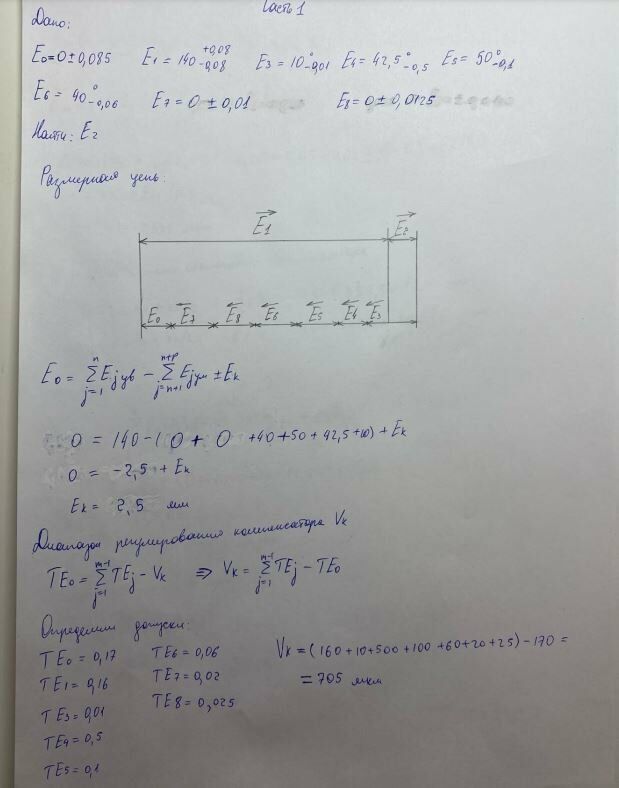 Часть 1
Дано:
E₀=0±0,085 E₁ = 140 +0,08 −0,08 E₃ = 10 0 −0,01 E₄ = 42,5 0 −0,5 E₅ = 50 0 −0,1
E₆ = 40 0 −0,06 E₇ = 0 ± 0,01 E₈ = 0 ± 0,0125
Найти: E₂
Размерная цепь:
E₁→ E₂→
E₀ ←E₇ ←E₈ ←E₆ ←E₅ ←E₄ ←E₃
E₀ = ∑ⁿⱼ₌₁ Eⱼ ув − ∑ⁿ⁺ᵖⱼ₌ₙ₊₁ Eⱼ ум ± Eₖ
0 = 140 − (0 + 0 + 40 + 50 + 42,5 + 10) + Eₖ
0 = −2,5 + Eₖ
Eₖ = 2,5 мм
Диапазон регулирования компенсатора Vₖ
TE₀ = ∑ᵐ⁻¹ⱼ₌₁ TEⱼ − Vₖ ⇒ Vₖ = ∑ᵐ⁻¹ⱼ₌₁ TEⱼ − TE₀
Определим допуски:
TE₀ = 0,17 TE₆ = 0,06 Vₖ = (160+10+500+100+60+20+25) − 170 =
TE₁ = 0,16 TE₇ = 0,02 = 705 мкм
TE₃ = 0,01 TE8 = 0,025
TE₄ = 0,5
TE₅ = 0,1